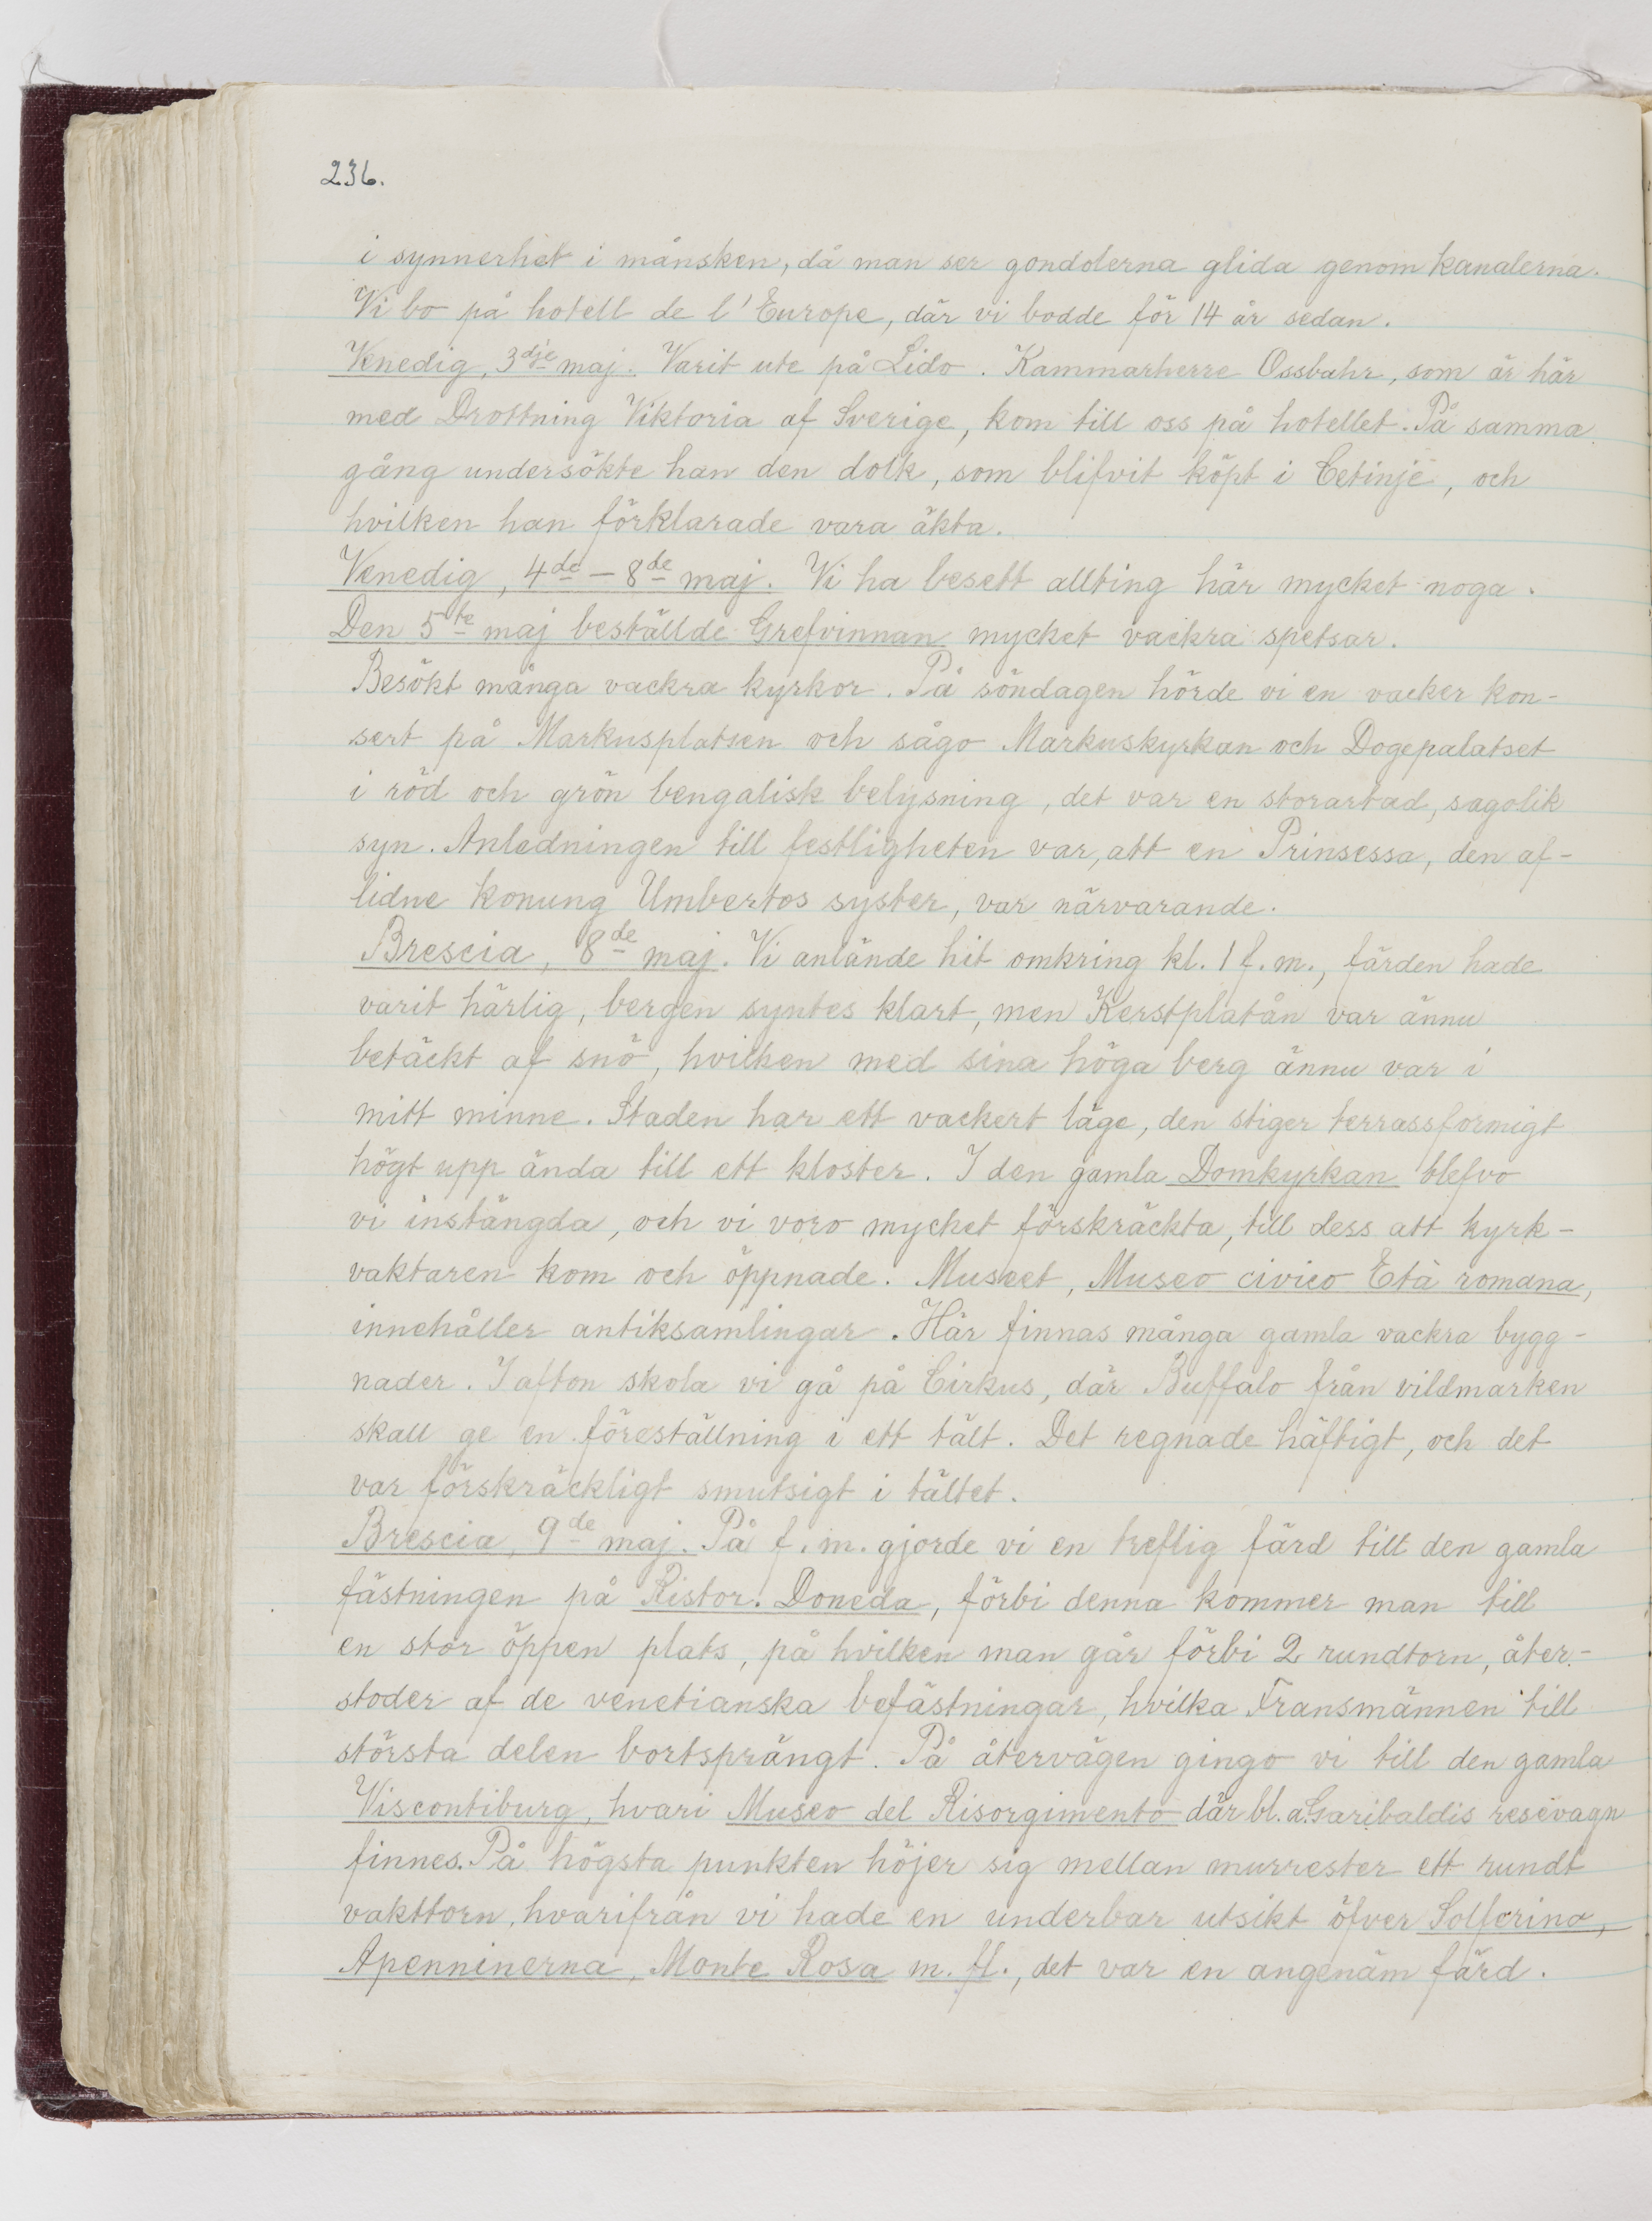 236.
i synnerhet i månsken, då man ser gondolerna glida genom kanalerna.
Vi bo på hotell de l'Europe, där vi bodde för 14 år sedan.
Venedig, 3dje maj. Varit ute på Lido. Kammarherre Ossbahr, som är här
med Drottning Viktoria af Sverige, kom till oss på hotellet. På samma
gång undersökte han den dolk, som blifvit köpt i Cetinje, och
hvilken han förklarade vara äkta.
Venedig, 4de – 8de maj. Vi ha besett allting här mycket noga.
Den 5te maj beställde Grefvinnan mycket vackra spetsar.
Besökt många vackra kyrkor. På söndagen hörde vi en vacker kon-
sert på Markusplatsen och sågo Markuskyrkan och Dogepalatset
i röd och grön bengalisk belysning, det var en storartad, sagolik
syn. Anledningen till festligheten var, att en Prinsessa, den af-
lidne konung Umbertos syster, var närvarande.
Brescia, 8de maj. Vi anlände hit omkring kl. 1 f.m., färden hade
varit härlig, bergen syntes klart, men Kerstplatån var ännu
betäckt af snö, hvilken med sina höga berg ännu var i
mitt minne. Staden har ett vackert läge, den stiger terrassformigt
högt upp ända till ett kloster. I den gamla Domkyrkan blefvo
vi instängda, och vi voro mycket förskräckta, till dess att kyrk-
vaktaren kom och öppnade. Museet, Museo civico Età romana,
innehåller antiksamlingar. Här finnas många gamla vackra bygg-
nader. I afton skola vi gå på Cirkus, där Buffalo från vildmarken
skall ge en föreställning i ett tält. Det regnade häftigt, och det
var förskräckligt smutsigt i tältet.
Brescia, 9de maj. På f.m. gjorde vi en treflig färd till den gamla
fästningen på Ristor. Doneda, förbi denna kommer man till
en stor öppen plats, på hvilken man går förbi 2 rundtorn, åter-
stoder af de venetianska befästningar, hvilka Fransmännen till
största delen bortsprängt. På återvägen gingo vi till den gamla
Viscontiburg, hvari Museo del Risorgimento där bl. a. Garibaldis resevagn
finnes. På högsta punkten höjer sig mellan murrester ett rundt
vakttorn, hvarifrån vi hade en underbar utsikt öfver Solferino,
Apenninerna, Monte Rosa m. fl., det var en angenäm färd.